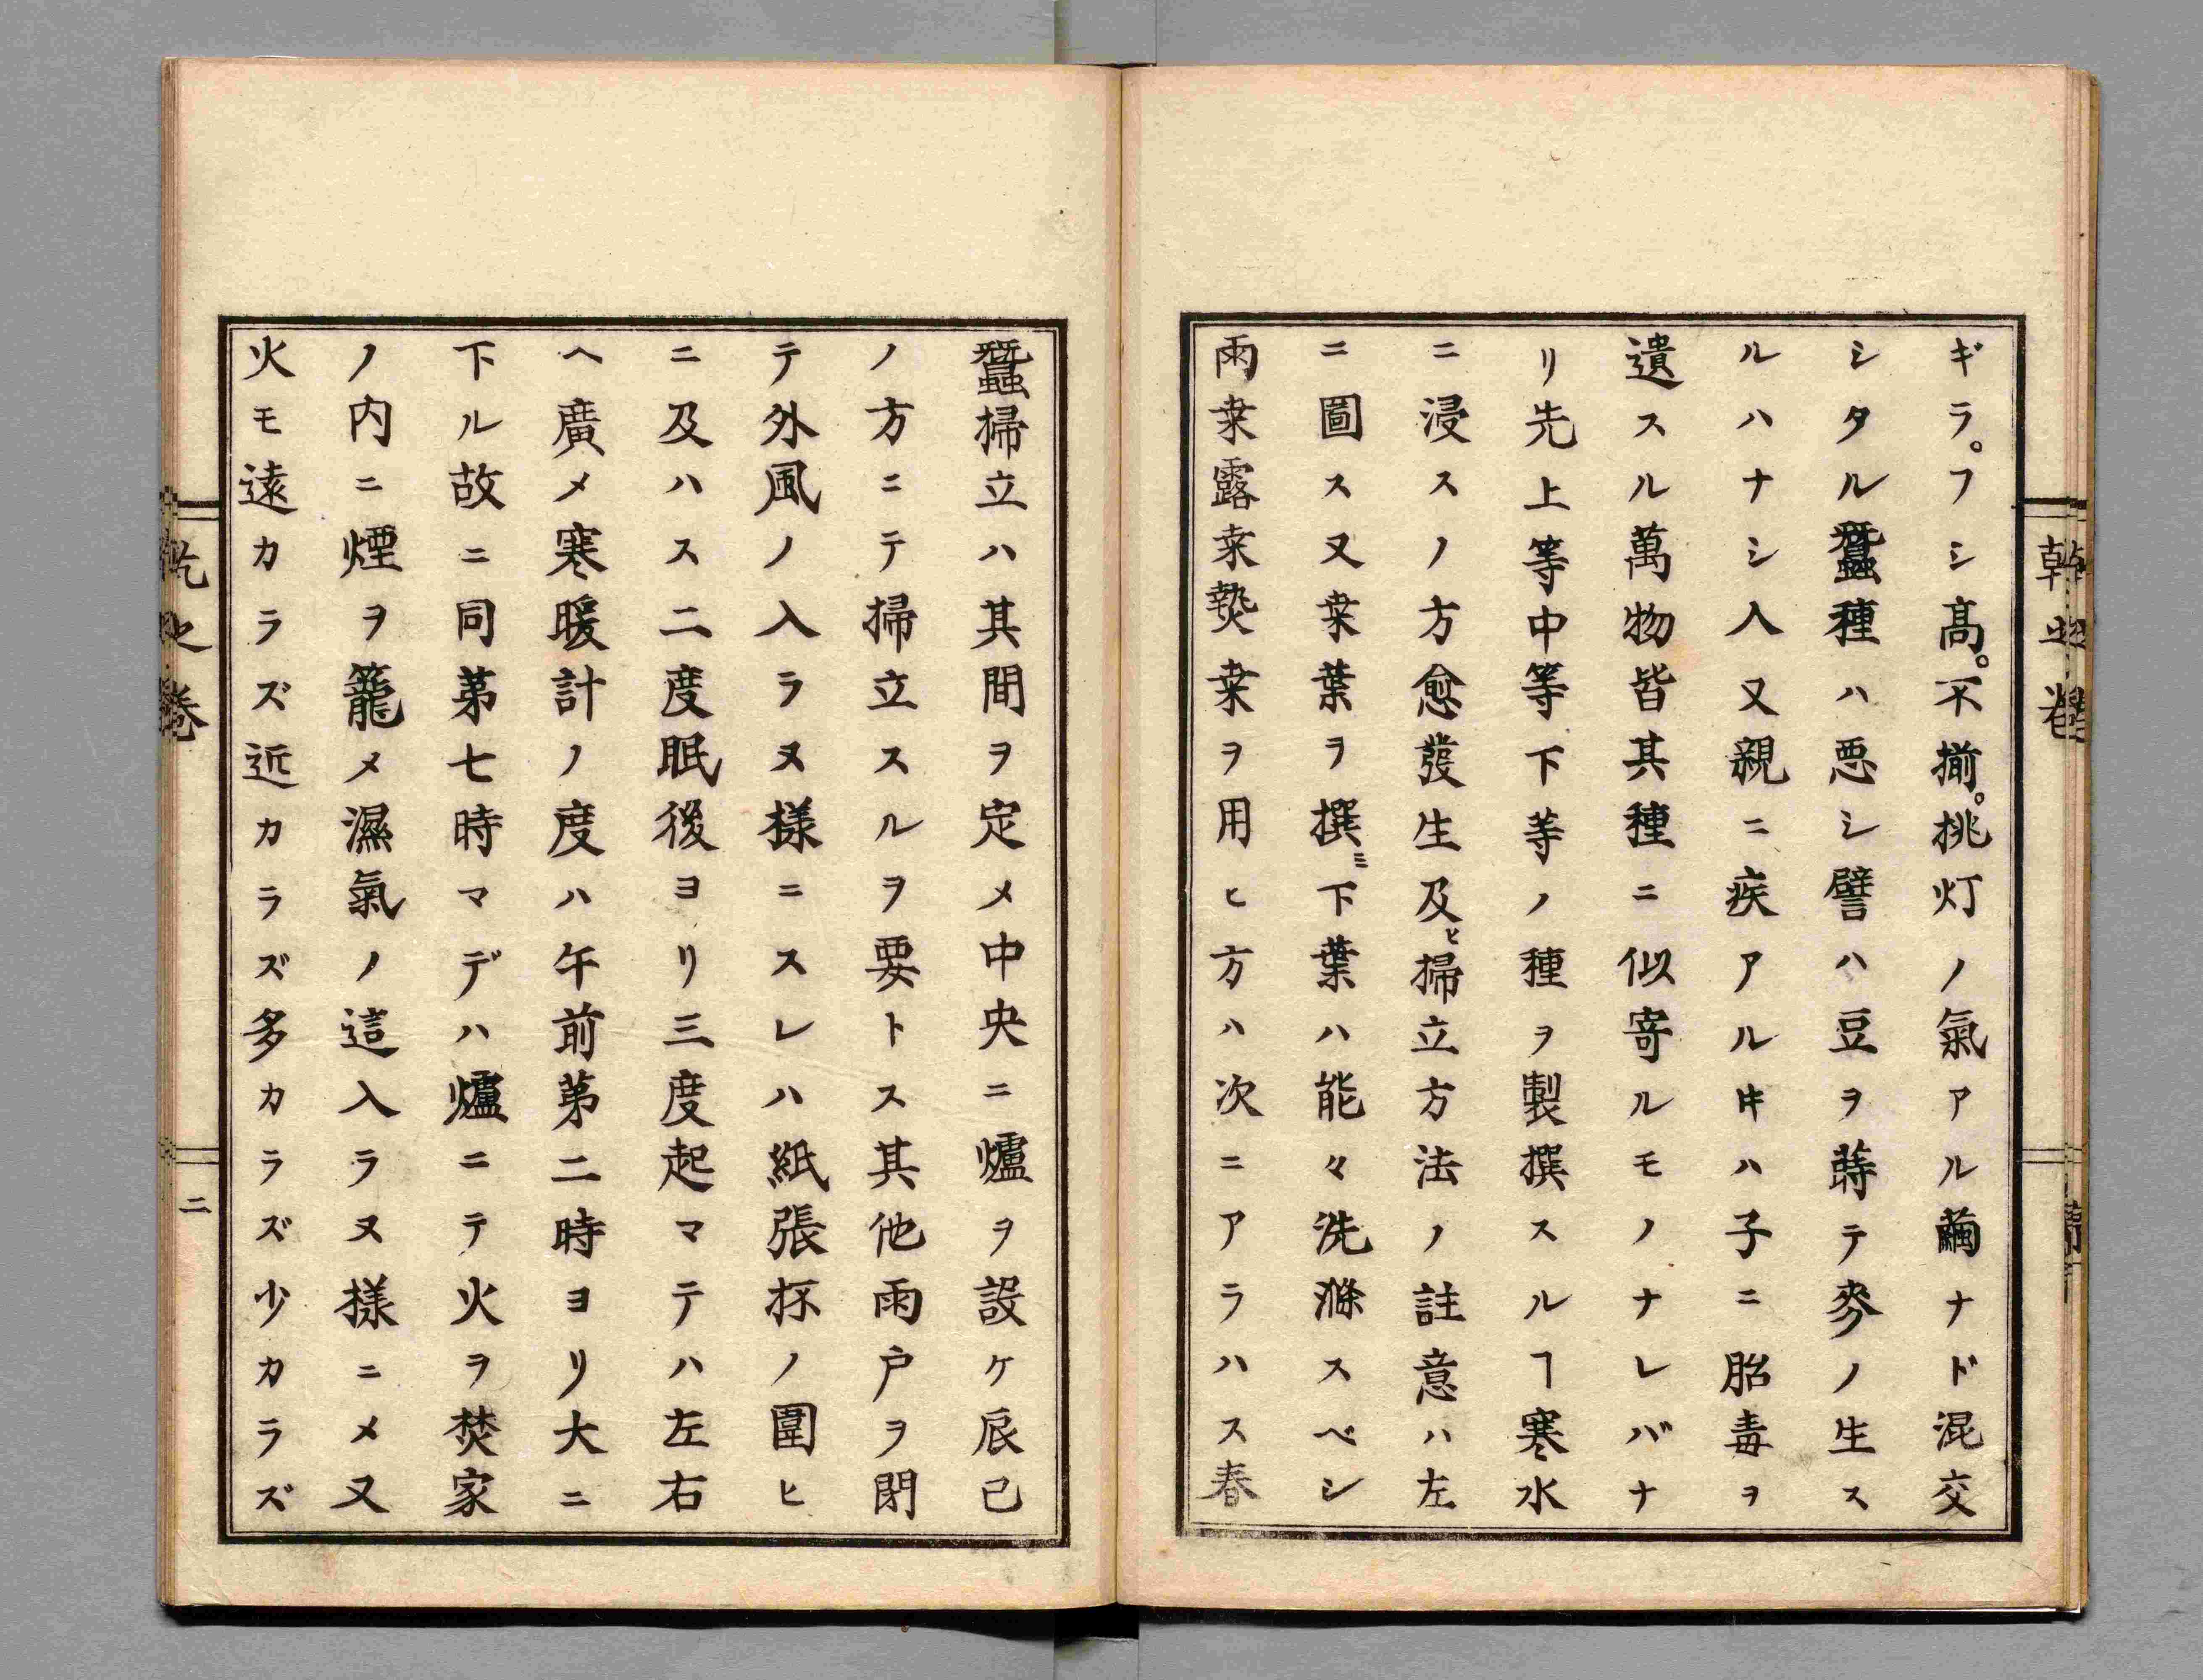 ギラ。フシ高。不揃。挑灯ノ氣アル繭ナド混交
シタル蠶種ハ悪シ譬ハ豆ヲ蒔テ麥ノ生ス
ルハナシ人又親ニ疾アルキハ子ニ胎毒ヲ
遺スル萬物皆其種ニ似寄ルモノナレバナ
リ先上等中等下等ノ種ヲ製撰スルヿ寒水
ニ浸スノ方愈發生及ヒ掃立方法ノ註意ハ左
ニ圖ス又桒葉ヲ撰ミ下葉ハ能々洗滌スベシ
雨桒露桒𤍠桒ヲ用ヒ方ハ次ニアラハス春
蠶掃立ハ其間ヲ定メ中央ニ爐ヲ設ケ辰己
ノ方ニテ掃立スルヲ要トス其他雨戸ヲ閉
テ外風ノ入ラヌ様ニスレハ紙張抔ノ圍ヒ
ニ及ハス二度眠後ヨリ三度起マテハ左右
ヘ廣メ寒暖計ノ度ハ午前第二時ヨリ大ニ
下ル故ニ同第七時マデハ爐ニテ火ヲ焚家
ノ内ニ煙ヲ籠メ濕氣ノ這入ラヌ様ニメ又
火モ遠カラズ近カラズ多カラズ少カラズ
乾之巻
二